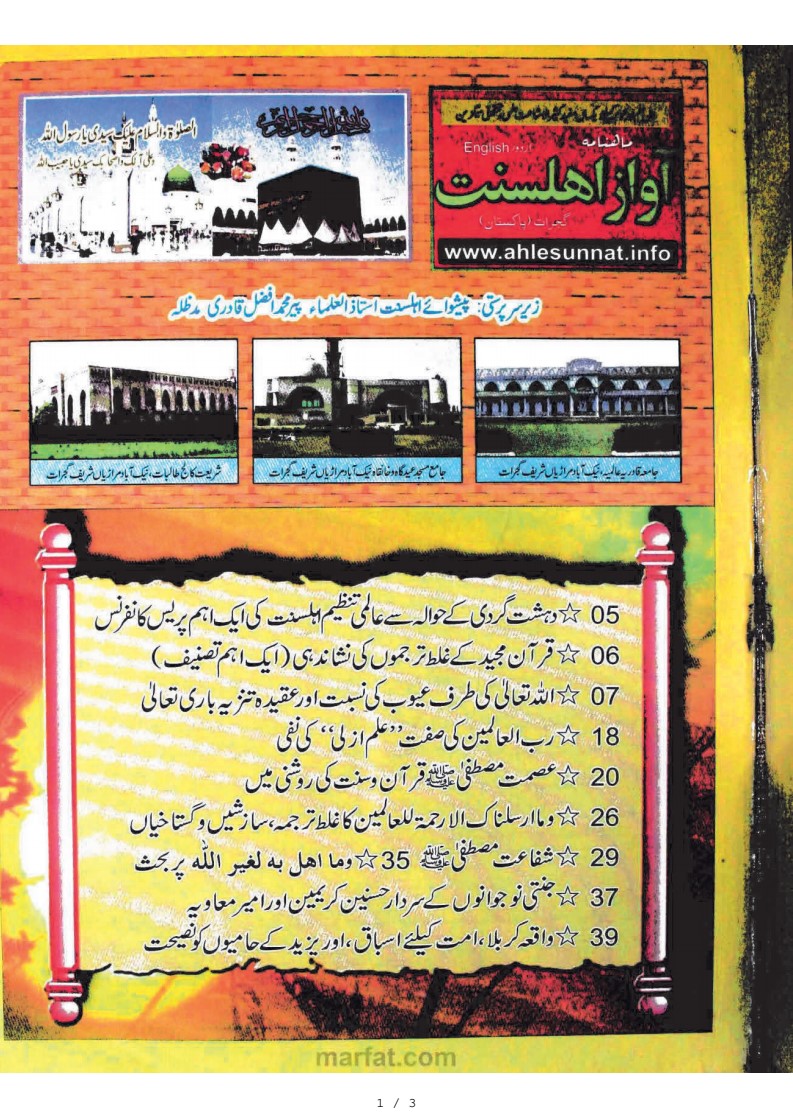 ماهنامه
English اردو
آواز اهلسنت
گجرات (پاکستان)
www.ahlesunnat.info
الصلوٰۃ والسلام علیک سیدی یا رسول اللہ
وعلیٰ آلک واصحابک سیدی یا حبیب اللہ
زیر سرپرستی: پیشوائے اہلسنت استاذ العلماء پیر محمد افضل قادری مدظلہ
جامعہ قادریہ عالمیہ، نیک آباد مراڑیاں شریف گجرات
جامع مسجد عیدگاہ وخانقاہ نیک آباد مراڑیاں شریف گجرات
شریعت کالج طالبات، نیک آباد مراڑیاں شریف گجرات
05 ☆ دہشت گردی کے حوالہ سے عالمی تنظیم اہلسنت کی ایک اہم پریس کانفرنس
06 ☆ قرآن مجید کے غلط ترجموں کی نشاندہی (ایک اہم تصنیف)
07 ☆ اللہ تعالیٰ کی طرف عیوب کی نسبت اور عقیدہ تنزیہ باری تعالیٰ
18 ☆ رب العالمین کی صفت ’’علم ازلی‘‘ کی نفی
20 ☆ عصمت مصطفیٰ ﷺ قرآن وسنت کی روشنی میں
26 ☆ وما ارسلناک الا رحمۃ للعالمین کا غلط ترجمہ، سازشیں وگستاخیاں
29 ☆ شفاعت مصطفیٰ ﷺ 35 ☆ وما اهل به لغير الله پر بحث
37 ☆ جنتی نوجوانوں کے سردار حسنین کریمین اور امیر معاویہ
39 ☆ واقعہ کربلا، امت کیلئے اسباق، اور یزید کے حامیوں کو نصیحت
marfat.com
1 / 3